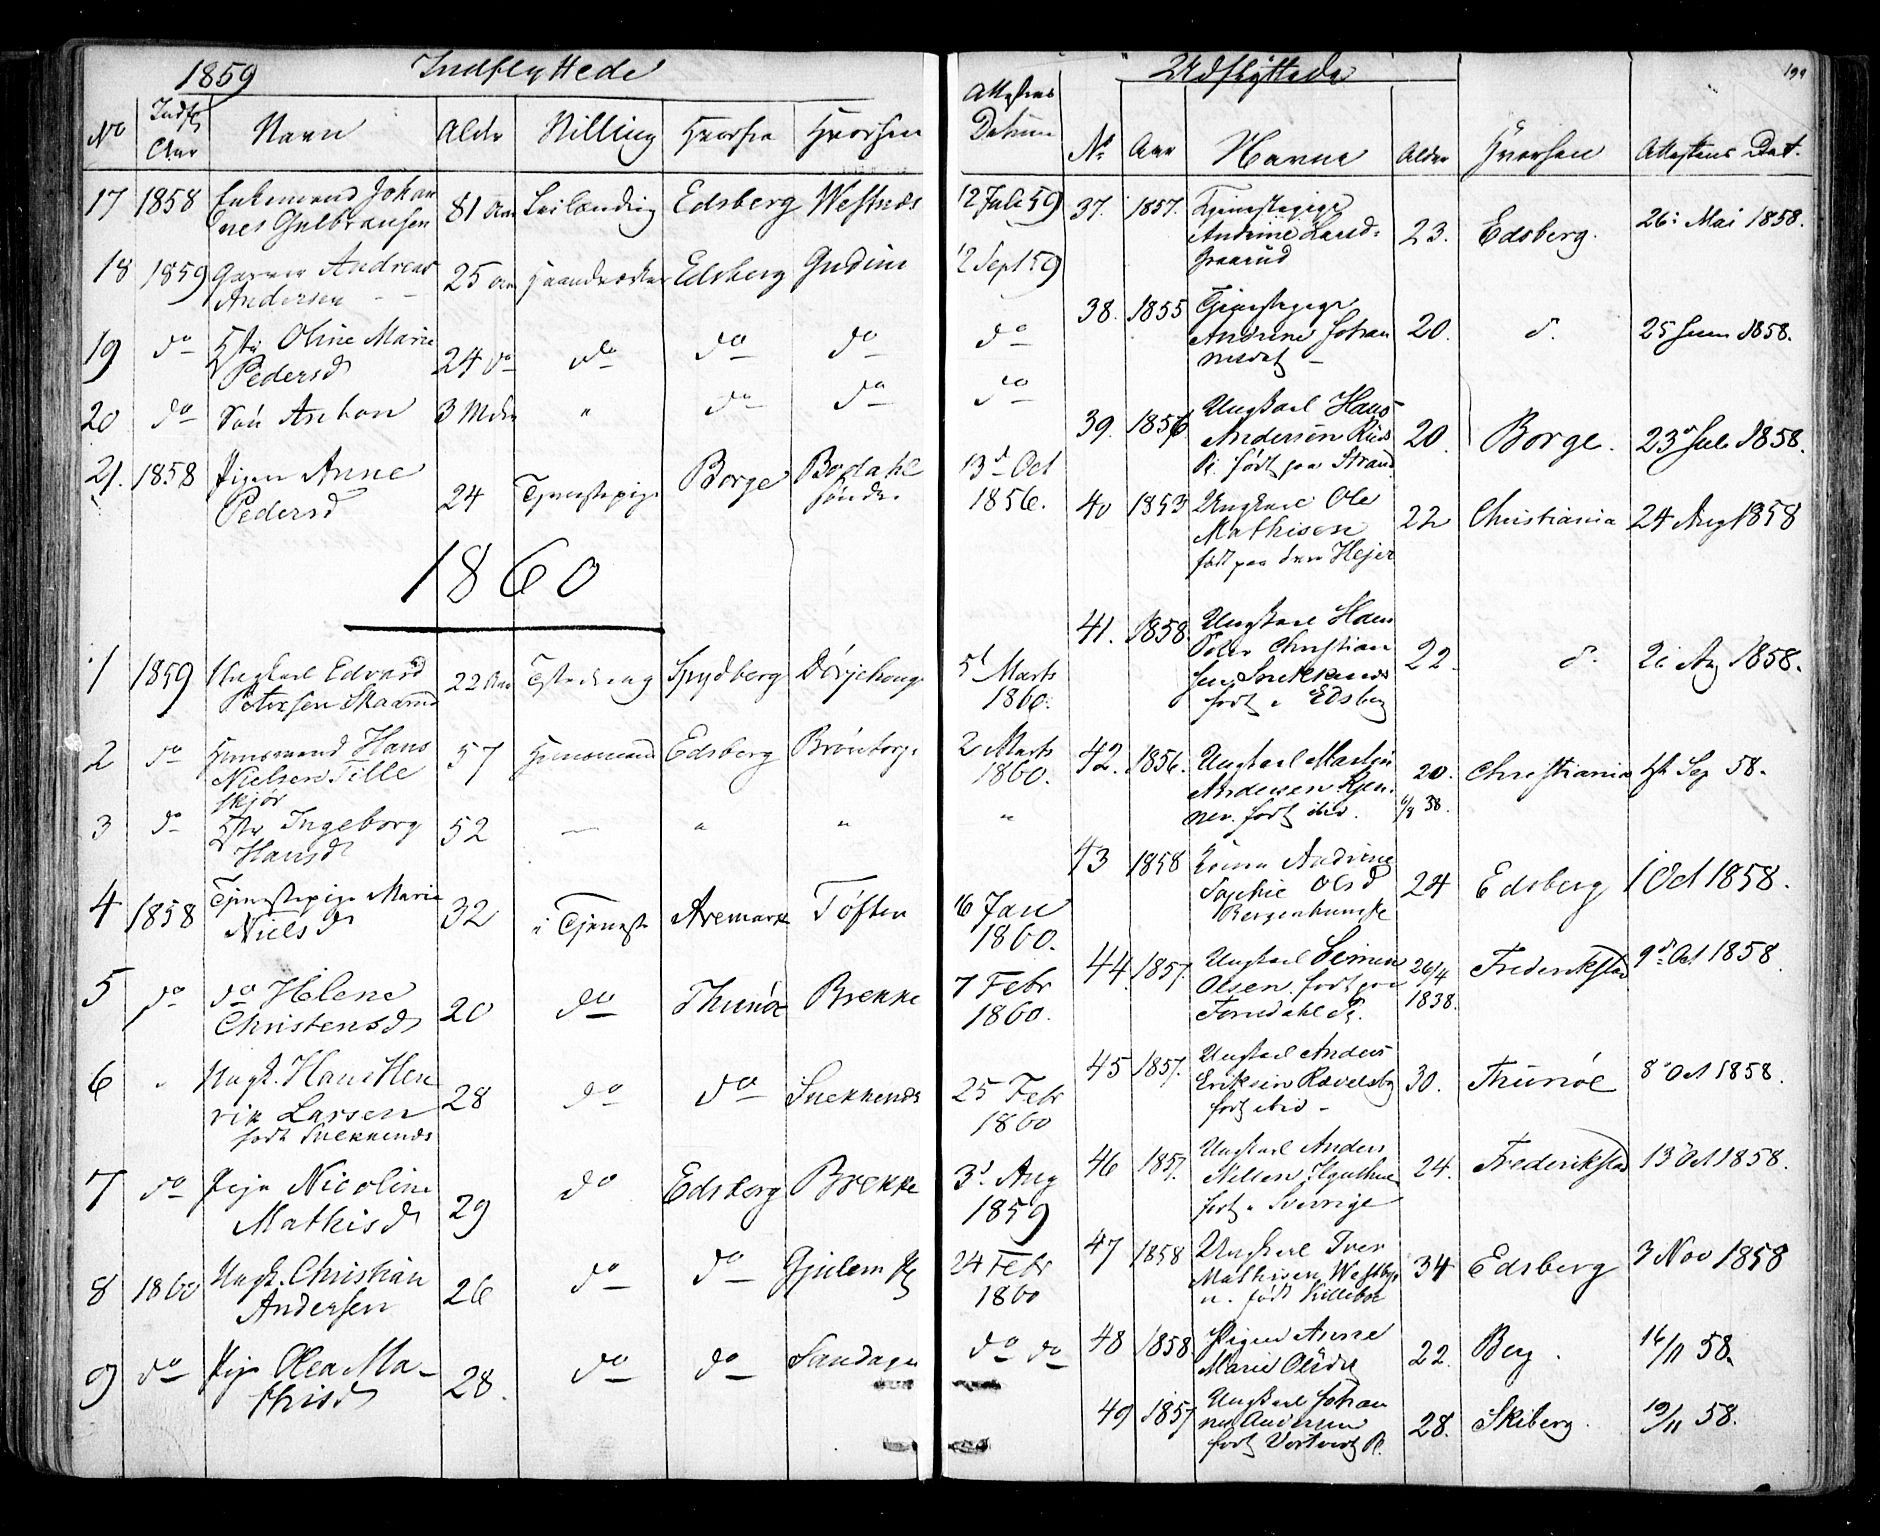 1859 Indflyttede
No Indfl. Aar Navn Alder Stilling Hvorfra Hvorhen Attestens Datum
17 1858 Enkemand Johan 81 Aar Edsberg Westnes 12 Juli 59
nes Gulbransen
18 1859 Garver Andreas 25 Aar Edsberg Gudim 12 Sept 59
Andersen
19 do Hstr Oline Marie 24 do do do do do
Pedersd
20 do Søn Anton 3 Mdr " do do do
21. 1858 Pigen Anne 24 Tjenestepige Borge Bødahl 13d Oct
Pedersd søndre 1856.
1860
1 1859 Ungkarl Edvard 22 Aar Spydberg 5d Marts
Petersen Skaarud 1860.
2 do Huusmand Hans 57 Huusmand Edsberg 2 Marts
Nielsen Tille 1860.
skjør
3 do Hstr Ingeborg 52 — " " "
Hansd
4 1858 Tjenestepige Marie 32 i Tjeneste Aremark Tøften 16 Jan
Nielsd 1860.
5 do do Helene 20 do Thunøe Brekke 7 Febr
Christensd 1860.
6 " Ungk. Hans Hen 28 do do Snekkenes 25 Febr
rik Larsen 1860
født Snekkenes
7 do Pige Nicoline 29 do Edsberg Brekke 3d Aug
Mathisd 1859
8 1860 Ungk. Christian 26 do do 24 Febr
Andersen 1860
9 do Pige Olea Ma- 28. do do do do
thisd
Udflyttede
No Aar Navne Alder Hvorhen Attestens Dat.
37. 1857. Tjenestepige 23. Edsberg. 26: Mai 1858.
Andrine Larsd:
Graarud
38. 1855 Tjenestepige 20. d. 25 Juni 1858.
Andrine Johan
nesdt —
39. 1856 Ungkarl Hans 20. Borge. 23d Juli 1858.
Andersen
Pl. født paa Strand
40 1853 Ungkarl Ole 22 Christiania 24 Aug 1858
Mathisen
født paa
41. 1858 Ungkarl Hans 22. d. Aug 1858.
Peter Christian
sen Snekkenes
født i Edsberg
42. 1856. Ungkarl Martin 20. Christiania Sep 58.
Andersen 38.
født ibid.
43 1858 Andrine 24 Edsberg 1 Oct 1858.
Sophie Olsd
44. 1857. Ungkarl Simen 26/4 Frederikstad 9d Oct 1858.
Olsen født paa 1838.
45 1857. Ungkarl Anders 30. Thunøe 8d Oct 1858.
Eriksen Rævelsby
født ibid —
46 1857. Ungkarl Anders 24. Frederikstad 13 Oct 1858.
Nilsen
født i Sverrige
47 1858 Ungkarl Iver 34 Edsberg 3 Nov 1858
Mathisen Westby
født
48 1858. Pigen Anne 22. Berg. 16/11 58.
Marie Olsdtr
49 1857 Ungkarl Johan 28. Skiberg. 19/11 58.
nes Andersen
født Pl.